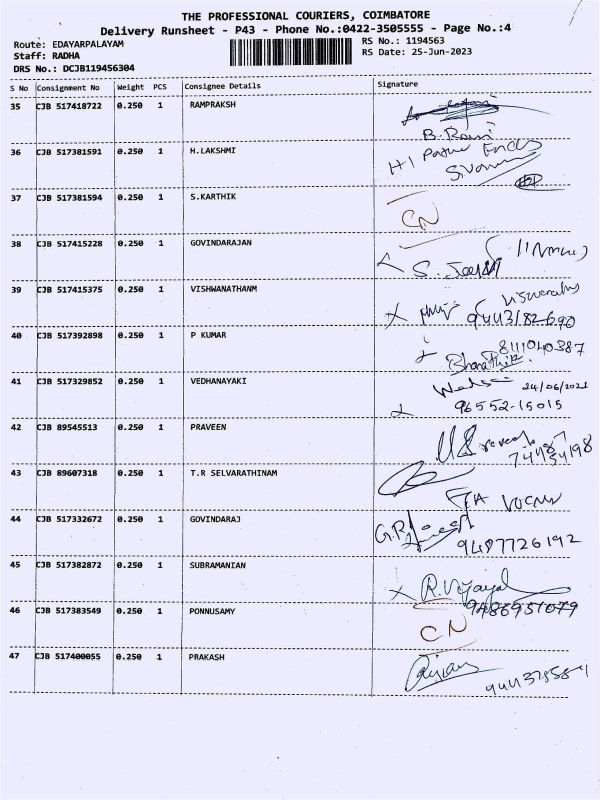 THE PROFESSIONAL COURIERS, COIMBATORE
Delivery Runsheet - P43 - Phone No.:0422-3505555 - Page No.:4
Route: EDAYARPALAYAM
RS No.: 1194563
Staff: RADHA
RS Date: 25-Jun-2023
DRS No.: DCJB119456304
S No Consignment No Weight PCS Consignee Details Signature
35 CJB 517418722 0.250 1 RAMPRAKSH
B. Rani
36 CJB 517381591 0.250 1 H.LAKSHMI H1
37 CJB 517381594 0.250 1 S.KARTHIK CN
38 CJB 517415228 0.250 1 GOVINDARAJAN S.
39 CJB 517415375 0.250 1 VISHWANATHANM
9443182690
40 CJB 517392898 0.250 1 P KUMAR 8111040387
41 CJB 517329852 0.250 1 VEDHANAYAKI 24/06/2021
96552-15015
42 CJB 89545513 0.250 1 PRAVEEN
43 CJB 89607318 0.250 1 T.R SELVARATHINAM
44 CJB 517332672 0.250 1 GOVINDARAJ G.R.
9487726192
45 CJB 517382872 0.250 1 SUBRAMANIAN R.Vijayal
9486951079
46 CJB 517383549 0.250 1 PONNUSAMY CN
47 CJB 517400055 0.250 1 PRAKASH